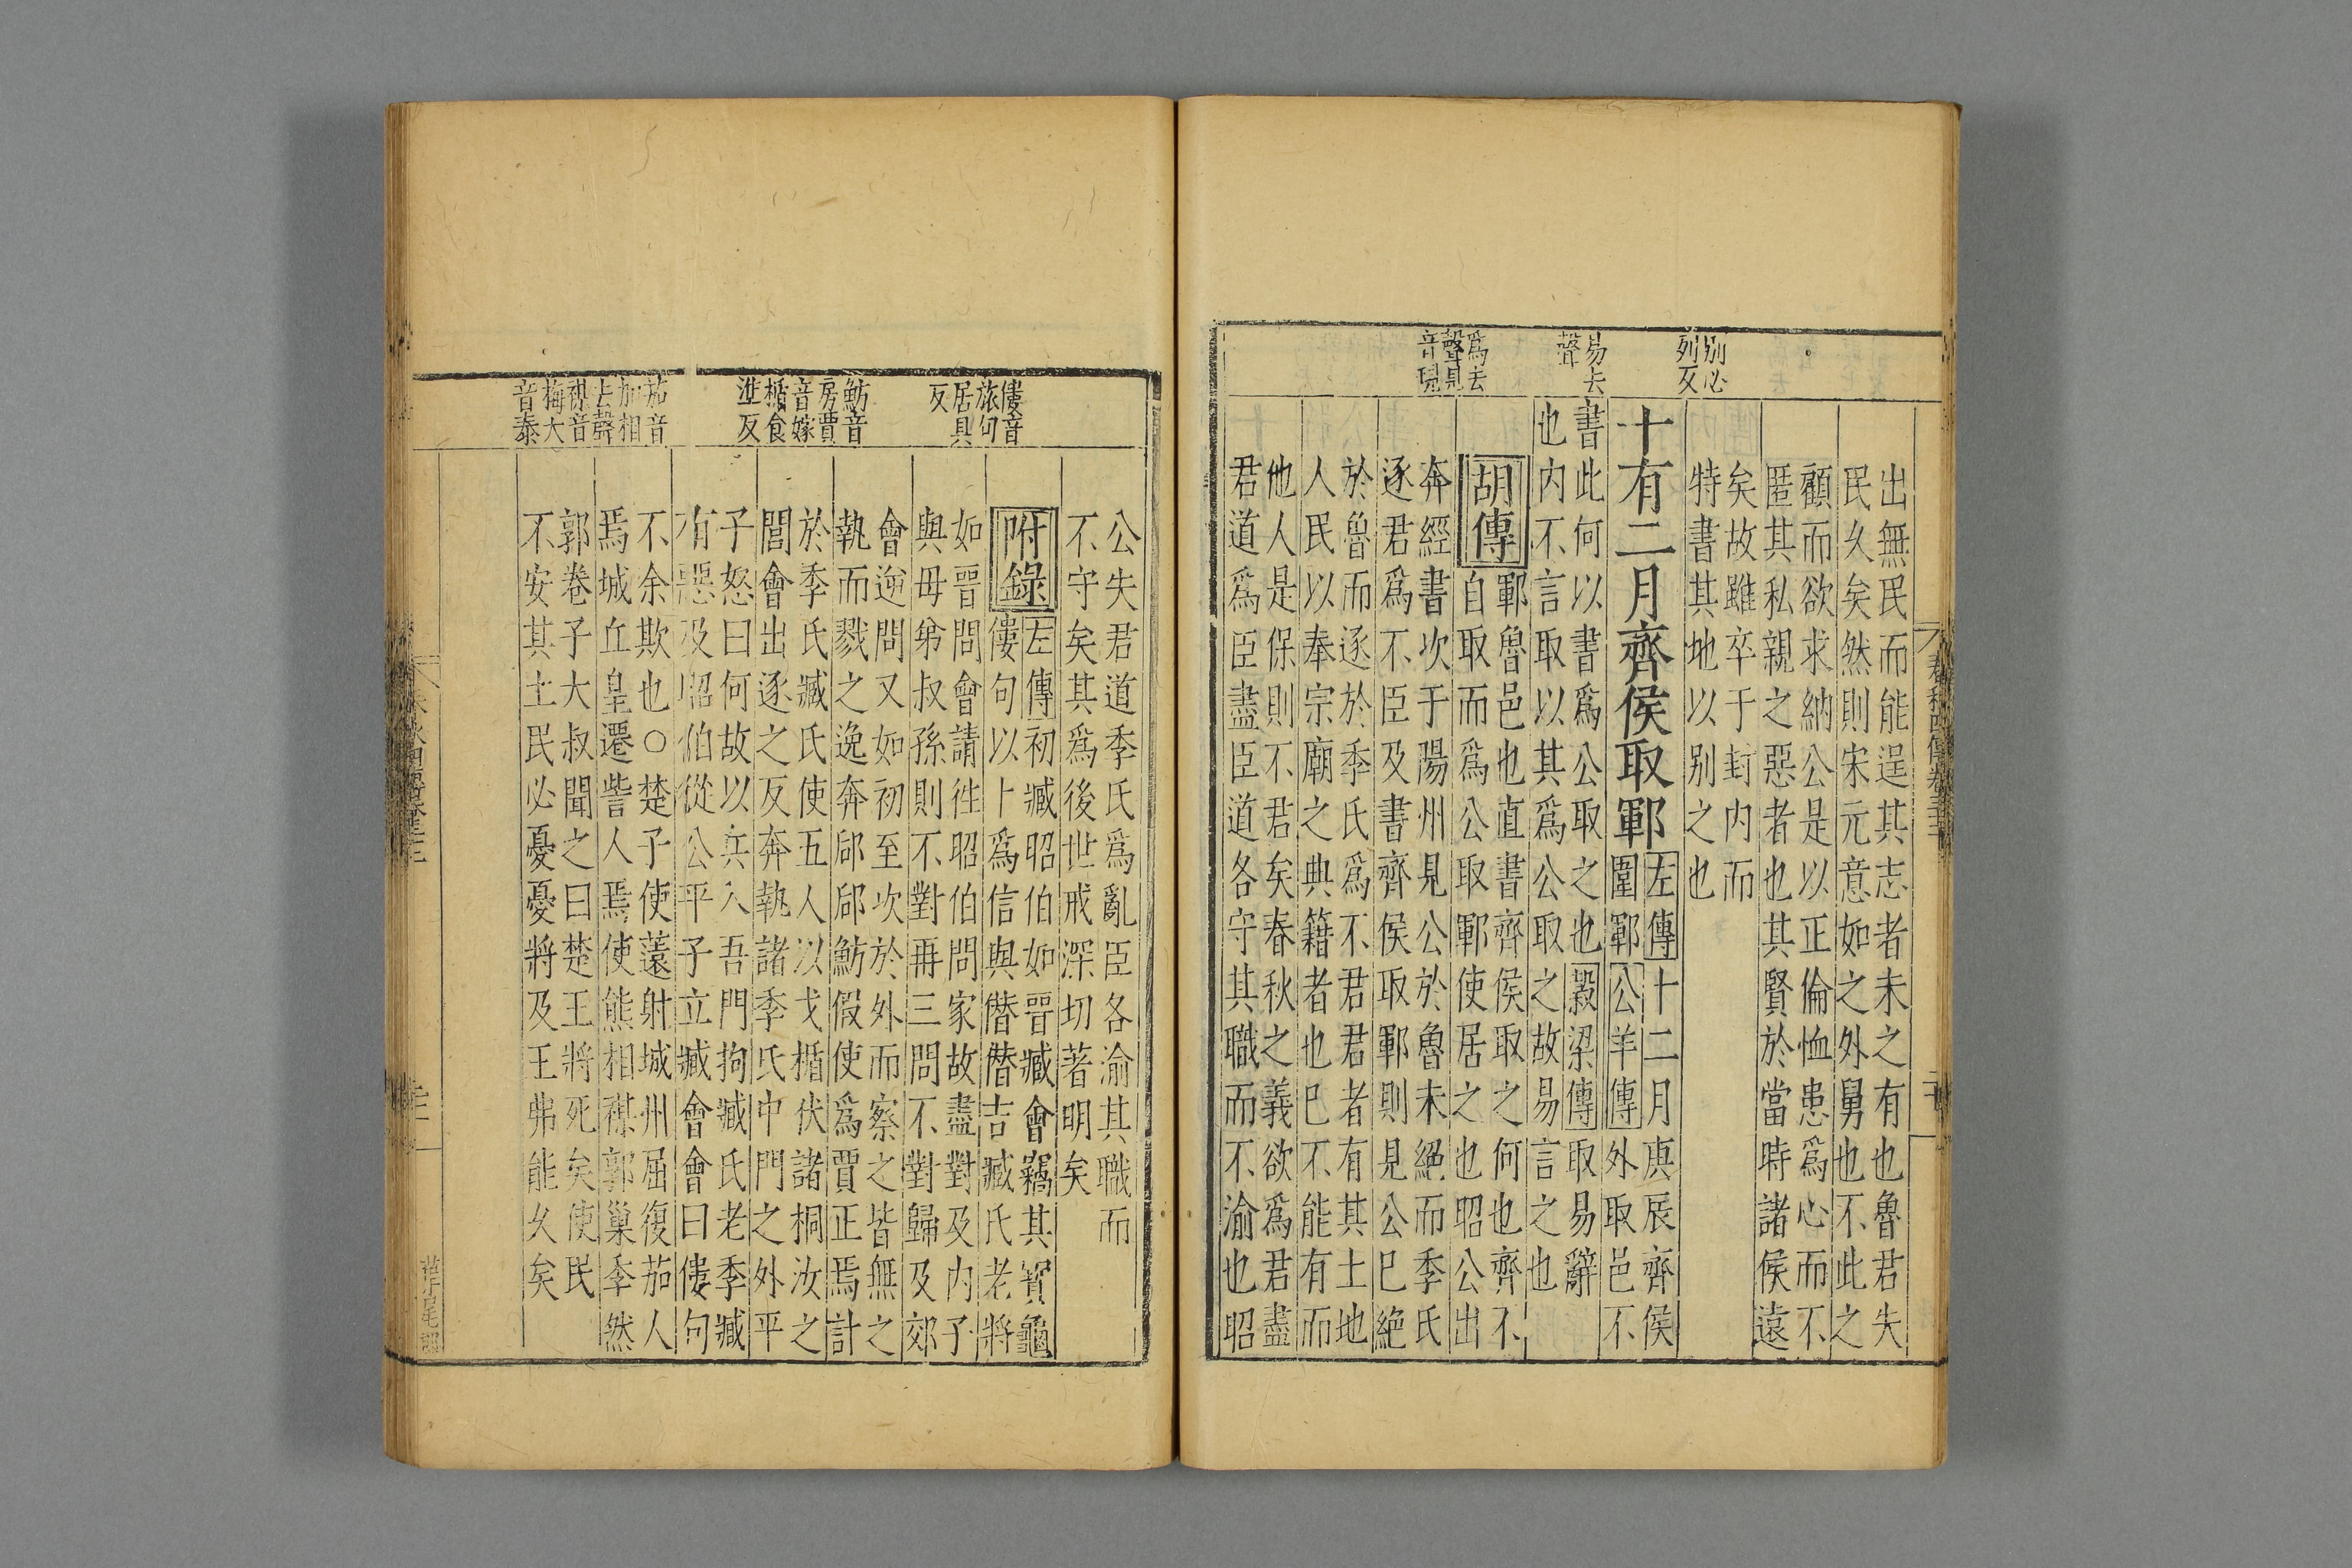 別必
列反
易去
聲
爲去
聲見
音現
出無民而能逞其志者未之有也魯君失
民久矣然則宋元意如之外舅也不此之
顧而欲求納公是以正倫恤患爲心而不
匿其私親之惡者也其賢於當時諸侯遠
矣故雖卒于封内而
特書其地以別之也
十有二月齊侯取鄆
左傳十二月庚辰齊侯
圍鄆公羊傳外取邑不
書此何以書爲公取之也穀梁傳取易辭
也内不言取以其爲公取之故易言之也
胡傳
鄆魯邑也直書齊侯取之何也齊不
自取而爲公取鄆使居之也昭公出
奔經書次于陽州見公於魯未絕而季氏
逐君爲不臣及書齊侯取鄆則見公已絕
於魯而逐於季氏爲不君君者有其土地
人民以奉宗廟之典籍者也已不能有而
他人是保則不君矣春秋之義欲爲君盡
君道爲臣盡臣道各守其職而不渝也昭
春秋四傳卷三十三
僂音
旅句
居具
反
魴音
房賈
音嫁
楯食
準反
茄音
加相
去聲
禖音
梅大
音泰
公失君道季氏爲亂臣各渝其職而
不守矣其爲後世戒深切著明矣
附錄
左傳初臧昭伯如晉臧會竊其寶龜
僂句以卜爲信與僭僭吉臧氏老將
如晉問會請往昭伯問家故盡對及内子
與母弟叔孫則不對再三問不對歸及郊
會逆問又如初至次於外而察之皆無之
執而戮之逸奔郈郈魴假使爲賈正焉計
於季氏臧氏使五人以戈楯伏諸桐汝之
閭會出逐之反奔執諸季氏中門之外平
子怒曰何故以兵入吾門拘臧氏老季臧
有惡及昭伯從公平子立臧會會曰僂句
不余欺也○楚子使薳射城州屈復茄人
焉城丘皇遷訾人焉使熊相禖郭巢季然
郭卷子大叔聞之曰楚王將死矣使民
不安其土民必憂憂將及王弗能久矣